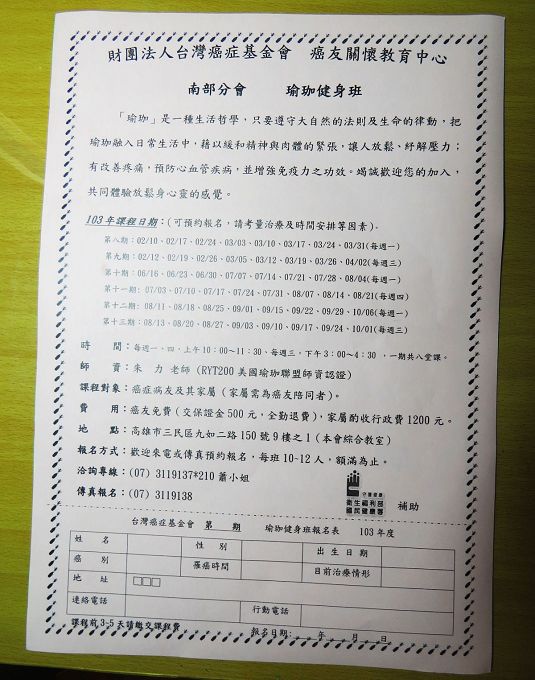 財團法人台灣癌症基金會　癌友關懷教育中心
南部分會　瑜珈健身班
「瑜珈」是一種生活哲學，只要遵守大自然的法則及生命的律動，把
瑜珈融入日常生活中，藉以緩和精神與肉體的緊張，讓人放鬆、紓解壓力；
有改善疼痛，預防心血管疾病，並增強免疫力之功效。竭誠歡迎您的加入，
共同體驗放鬆身心靈的感覺。
103年課程日期：(可預約報名，請考量治療及時間安排等因素)。
第八期：02/10、02/17、02/24、03/03、03/10、03/17、03/24、03/31(每週一)
第九期：02/12、02/19、02/26、03/05、03/12、03/19、03/26、04/02(每週三)
第十期：06/16、06/23、06/30、07/07、07/14、07/21、07/28、08/04(每週一)
第十一期：07/03、07/10、07/17、07/24、07/31、08/07、08/14、08/21(每週四)
第十二期：08/11、08/18、08/25、09/01、09/15、09/22、09/29、10/06(每週一)
第十三期：08/13、08/20、08/27、09/03、09/10、09/17、09/24、10/01(每週三)
時　　間：每週一、四，上午10：00~11：30、每週三，下午3：00~4：30，一期共八堂課。
師　　資：朱　力 老師 (RYT200 美國瑜珈聯盟師資認證)
課程對象：癌症病友及其家屬 (家屬需為癌友陪同者)。
費　　用：癌友免費 (交保證金500元，全勤退費)，家屬酌收行政費1200元。
地　　點：高雄市三民區九如二路150號9樓之1 (本會綜合教室)
報名方式：歡迎來電或傳真預約報名，每班10-12人，額滿為止。
洽詢專線：(07) 3119137*210 蕭小姐
傳真報名：(07) 3119138
衛生福利部
國民健康署
補助
台灣癌症基金會　第　期　瑜珈健身班報名表　103年度
姓　名　性　別　出生日期
癌　別　罹癌時間　目前治療情形
地　址　□□□
連絡電話　行動電話
課程前3-5天請繳交課程費　報名日期:　年　月　日